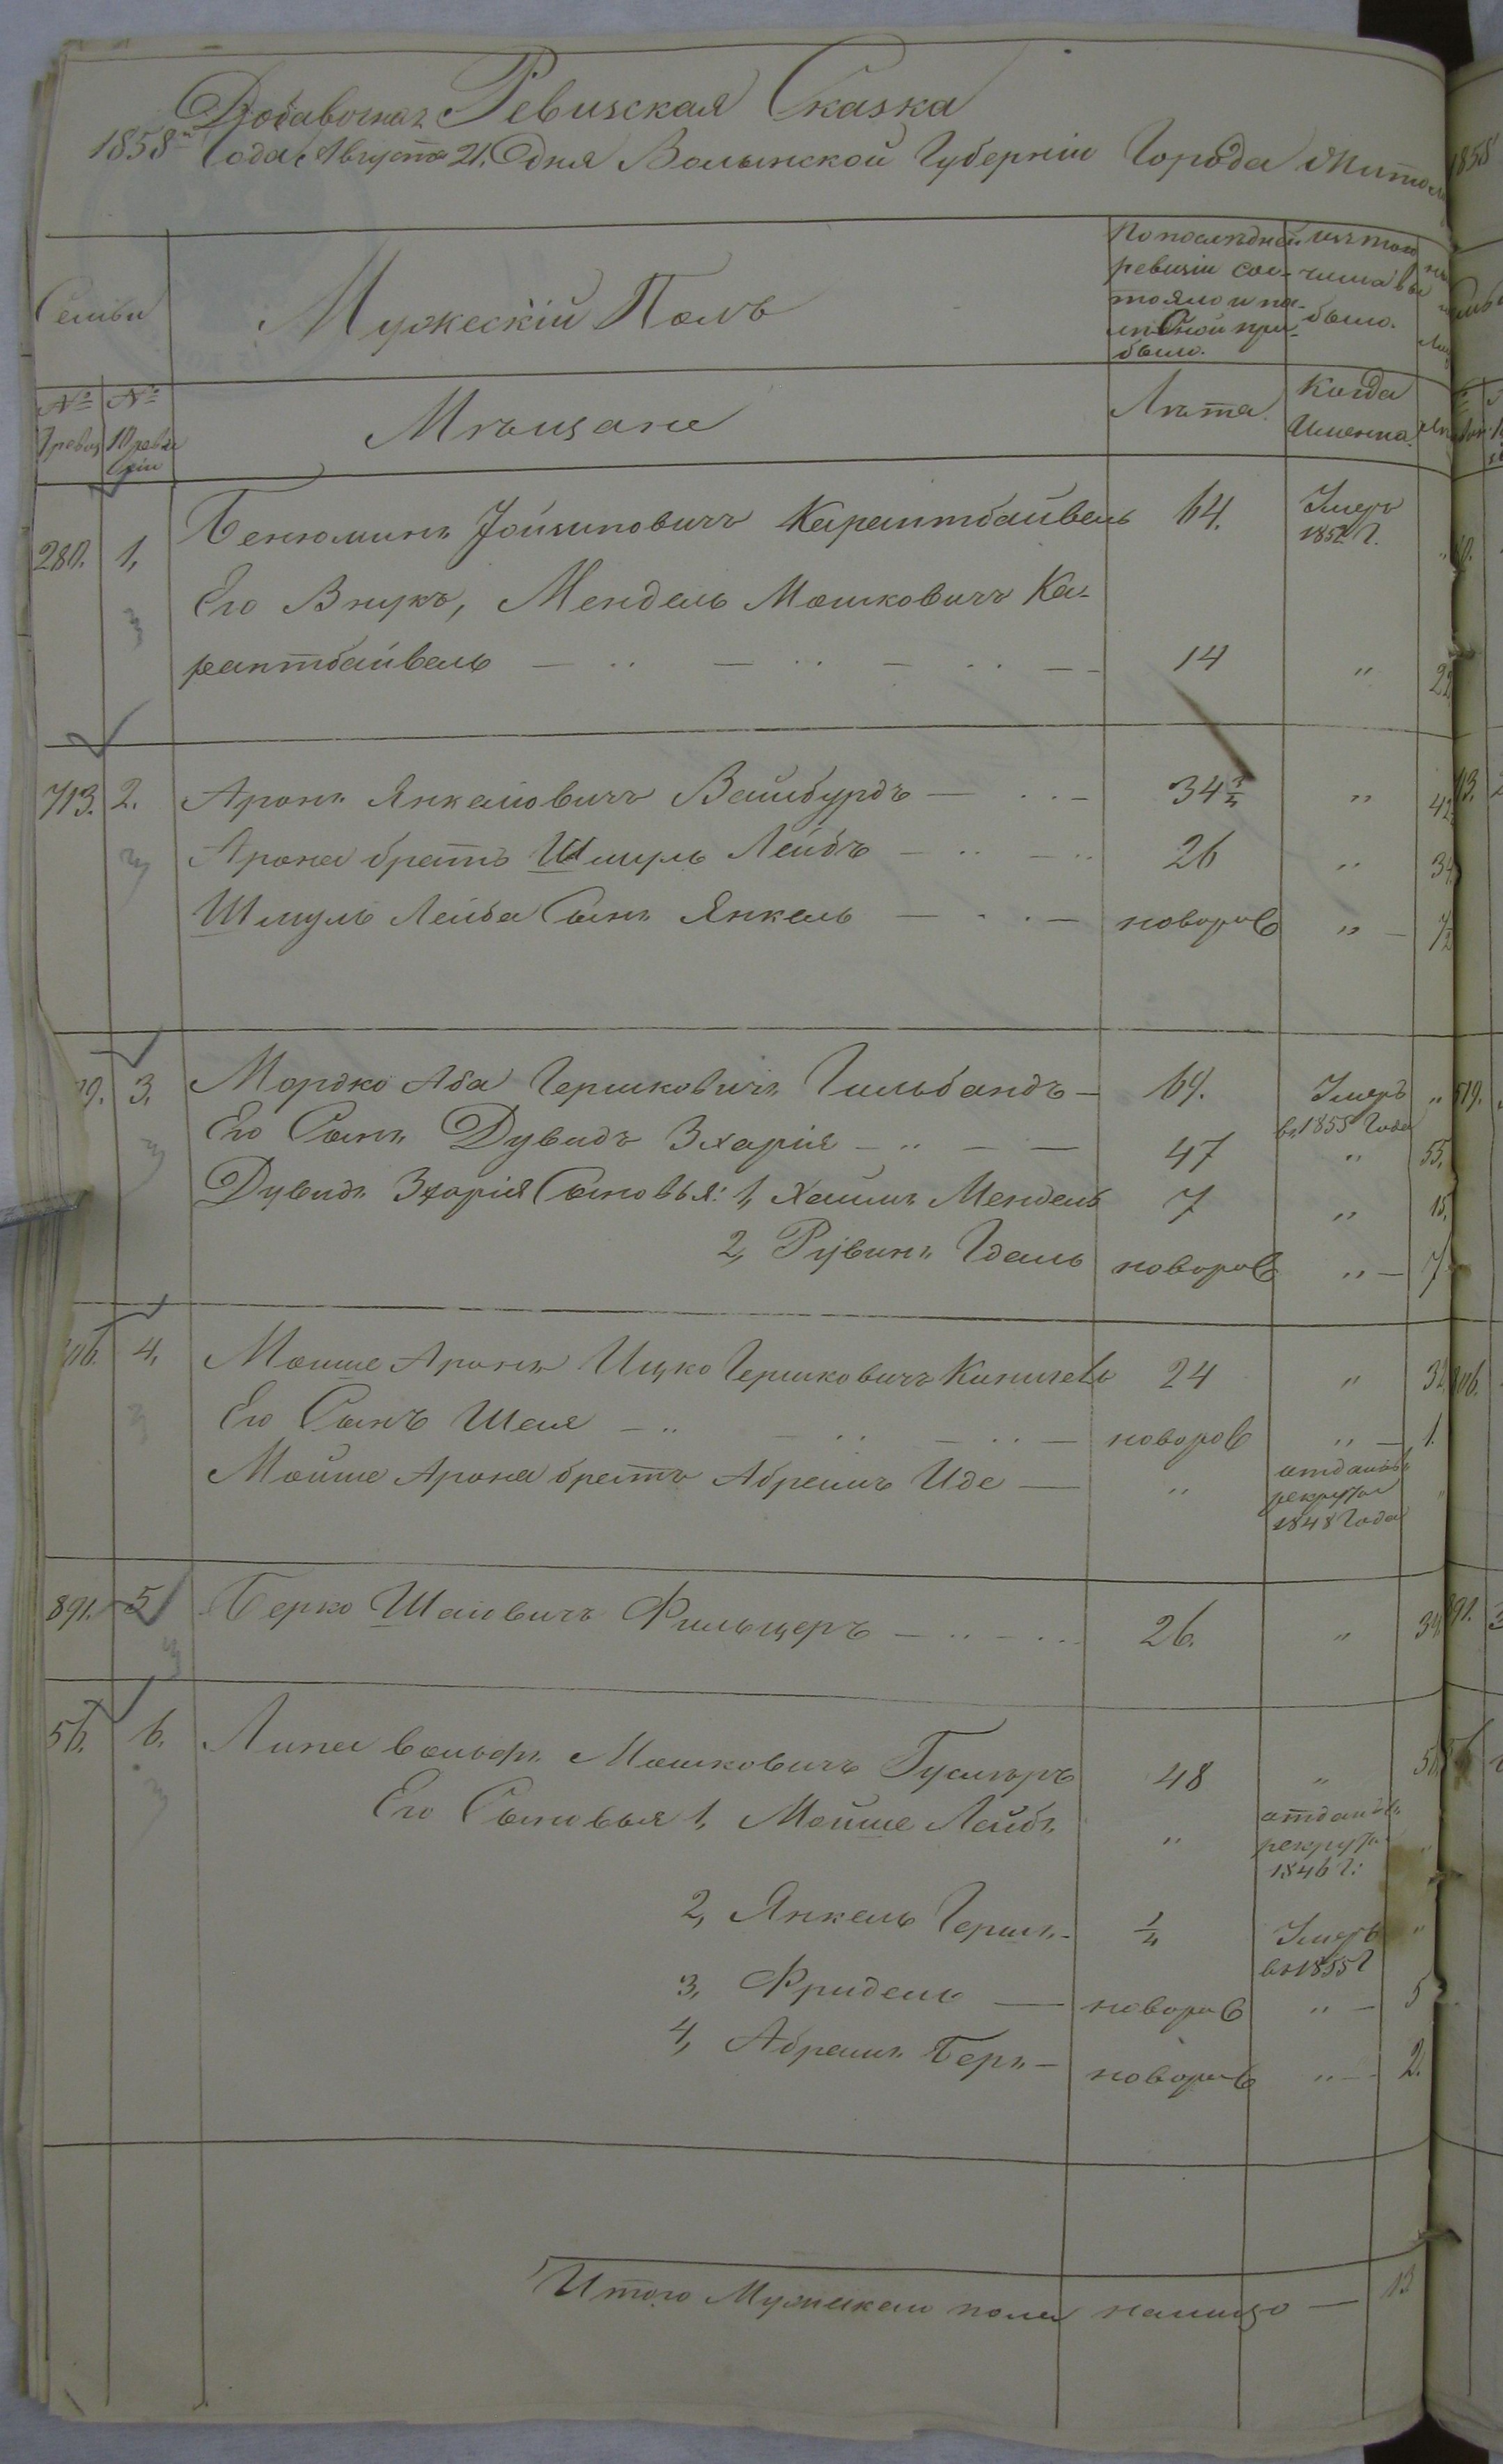 Добавочная Ревизская Сказка
1858го Года Августа 21 Дня Волынской Губерніи Города Житом
Семьи
Мужескій Полъ
По послѣдней ревизіи сос-тояло и по-слѣ оной при-было.
изъ того числа вы было.
№ ревиз
№ 10 ревизіи
Мѣщане
Лѣта
Когда Именно.
280. 1, Бенюминъ Іойзиповичъ Карантбайвель 64. Умеръ 185 Г. "
Его Внукъ, Мендель Мошковичъ Ка-
рантбайвель 14 " 22
713. 2. Аронъ Янкелевичъ Вайсбурдъ 34 " 42
Арона братъ Шмуль Лейбъ 26 " 34
Шмуль Лейба Сынъ Янкель новорож " ½
9. 3. Мордко Аба Гершковичъ Гильбандъ 64. Умеръ въ 1855 Года "
Его Сынъ Дувидъ Зхарія 47 " 55.
Дувидъ Зхарія Сыновья: 1, Хаимъ Мендель 7 " 15.
2, Рувинъ Гдаль новорож " 7
06. 4, Мойше Аронъ Ицко Гершковичъ 24 " 32
Его Сынъ Шая новорож " 1.
Мойше Арона братъ Абрамъ Иде " отданъ въ рекруты 1848 Года "
891. 5 Берко Шаевичъ Фильцеръ 26. " 34
56. 6. Липа Вольфъ Мошковичъ 48 " 56
Его Сыновья 1, Мойше Лейбъ " отданъ въ рекруты 1846 г: "
2, Янкель Гершъ ¼ Умеръ въ 1855 г "
3, Фридель новорож " 5
4, Абрамъ Беръ новорож " 2.
Итого Мужеска пола налицо 13